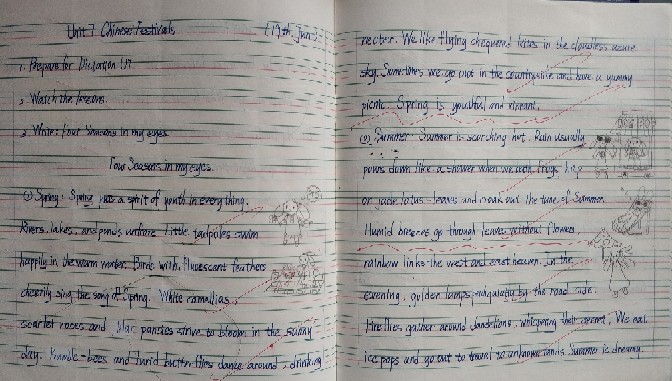 Unit 7 Chinese Festivals (19th, Jun.)
1. Prepare for Dictation U7
2. Watch the lessons.
3. Write Four Seasons in my eyes
Four Seasons in my eyes.
① Spring: Spring puts a spirit of youth in every thing.
Rivers, lakes, and ponds unfroze. Little tadpoles swim
happily in the warm water. Birds with fluorescent feathers
cheerily sing the song of Spring. White camellias,
scarlet roses and lilac pansies strive to bloom in the sunny
day. Bumble-bees and lurid butterflies dance around, drinking
nectar. We like flying chequered kites in the cloudless azure
sky. Sometimes we go out in the countryside and have a yummy
picnic. Spring is youthful and vibrant.
② Summer: Summer is scorching hot. Rain usually
pours down like a shower when we frogs
on jade lotus-leaves and croak out the tune of Summer.
Humid breezes go through leaves without flowers,
rainbow links the west and east heaven. In the
evening, golden lamps by the road side.
Fireflies gather around dandelions, whispering their secret. We eat
ice pops and go out to travel to unknown lands. Summer is dreamy.